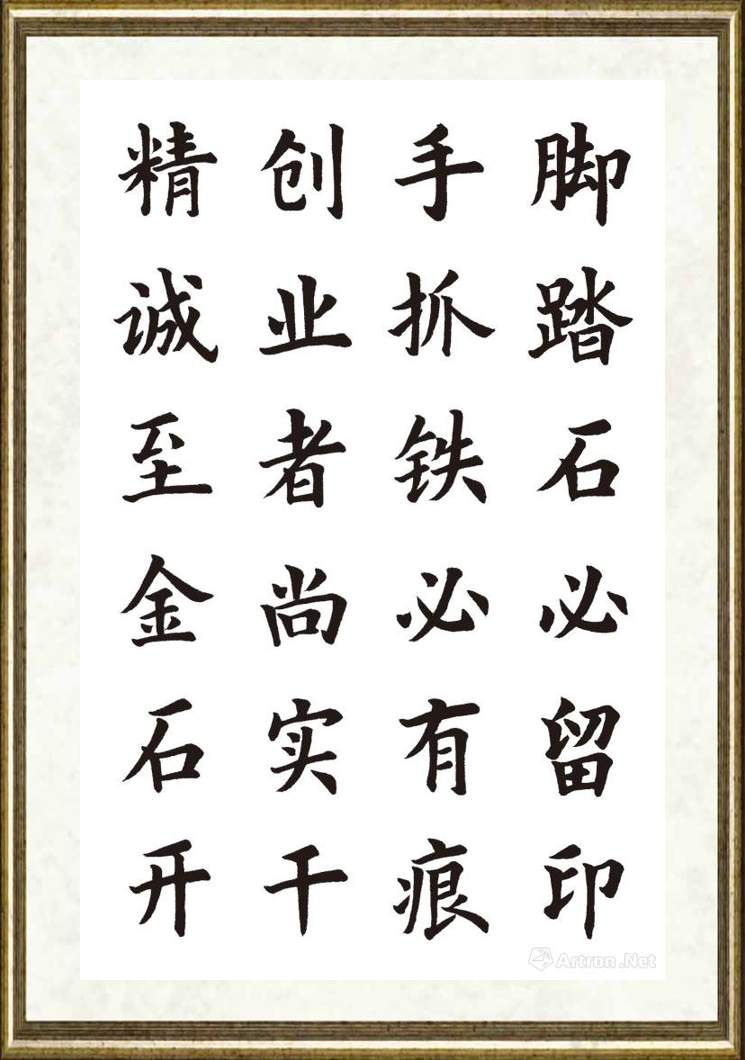 脚踏石必留印
手抓铁必有痕
创业者尚实干
精诚至金石开
Artron.Net